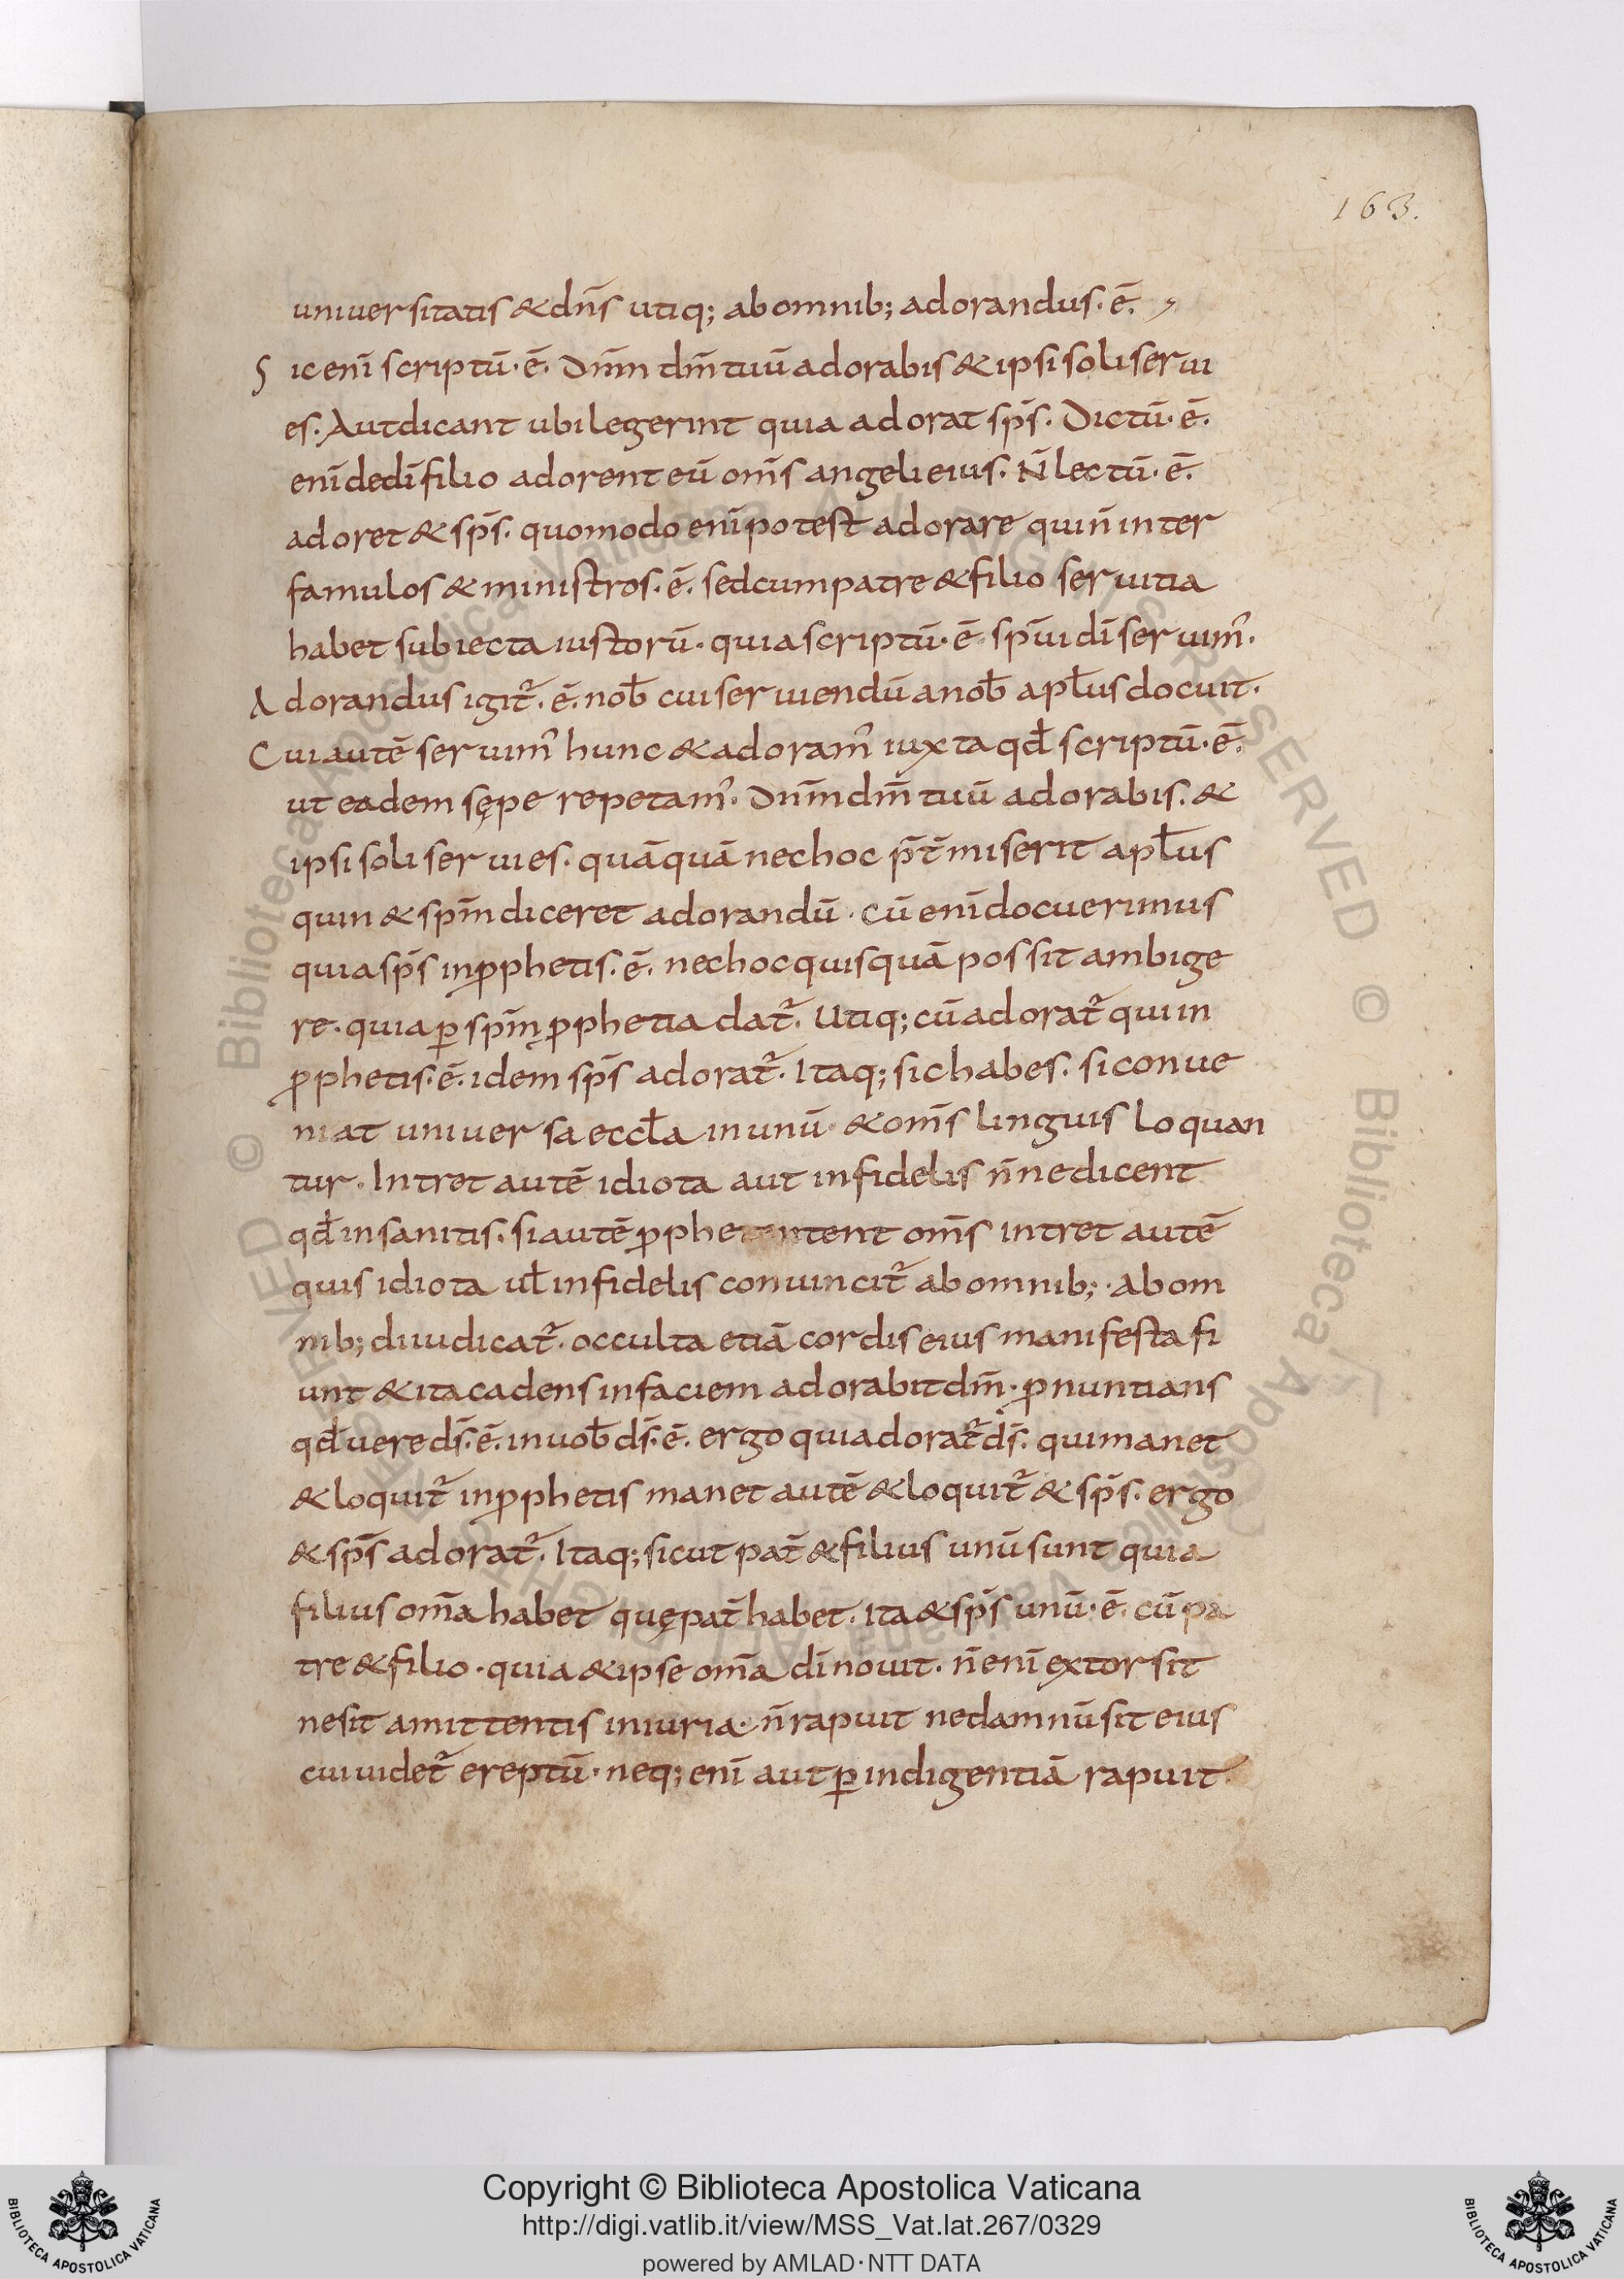 163.
uniuersitatis & dn̄s utiq; ab omnib; adorandus·ē·
Sic enī scriptū·ē· Dn̄m dm̄ tuū adorabis & ipsi soli serui
es. Aut dicant ubi legerint quia adorat sp̄s. Dictū·ē·
enī de dī filio adorent eū om̄s angeli eius. N̄ lectū·ē·
adoret & sp̄s. quomodo enī potest adorare qui n̄ inter
famulos & ministros·ē· sed cum patre & filio seruitia
habet subiecta iustorū· quia scriptū·ē· sp̄ui dī seruim᾽·
Adorandus igit᷑·ē· nob̄ cui seruiendū a nob̄ apl̄us docuit·
Cui autē seruim᾽ hunc & adoram᾽ iuxta qd̄ scriptū·ē·
ut eadem sępe repetam᾽· Dn̄m dm̄ tuū adorabis. &
ipsi soli seruies. quāquā nec hoc p̄t̄miserit apl̄us
quin & sp̄m diceret adorandū· cū enī docuerimus
quia sp̄s in ꝓphetis·ē· nec hoc quisquā possit ambige
re· quia ꝑ sp̄m ꝓphetia dat᷑· Utiq; cū adorat᷑ qui in
ꝓphetis·ē· idem sp̄s adorat᷑· Itaq; sic habes. si conue
niat uniuersa eccl̄a in unū· & om̄s linguis loquan
tur· Intret autē idiota aut infidelis n̄ne dicent
qd̄ insanitis. si autē ꝓphetent om̄s intret autē
quis idiota ul̄ infidelis conuincit᷑ ab omnib;· Ab om
nib; diiudicat᷑· occulta etiā cordis eius manifesta fi
unt & ita cadens in faciem adorabit dm̄· ꝓnuntians
qd̄ uere ds̄·ē· in uob̄ ds̄·ē· ergo qui adorat᷑ ds̄· qui manet
& loquit᷑ in ꝓphetis manet autē & loquit᷑ & sp̄s· ergo
& sp̄s adorat᷑· Itaq; sicut pat̄ & filius unū sunt quia
filius om̄a habet quę pat̄ habet· Ita & sp̄s unū·ē· cū pa
tre & filio· quia & ipse om̄a dī nouit· n̄ enī extorsit
ne sit amittentis iniuria· n̄ rapuit ne damnū sit eius
cui uidet᷑ ereptū· neq; enī aut ꝑ indigentiā rapuit
Copyright © Biblioteca Apostolica Vaticana
http://digi.vatlib.it/view/MSS_Vat.lat.267/0329
powered by AMLAD·NTT DATA
BIBLIOTECA APOSTOLICA VATICANA
BIBLIOTECA APOSTOLICA VATICANA